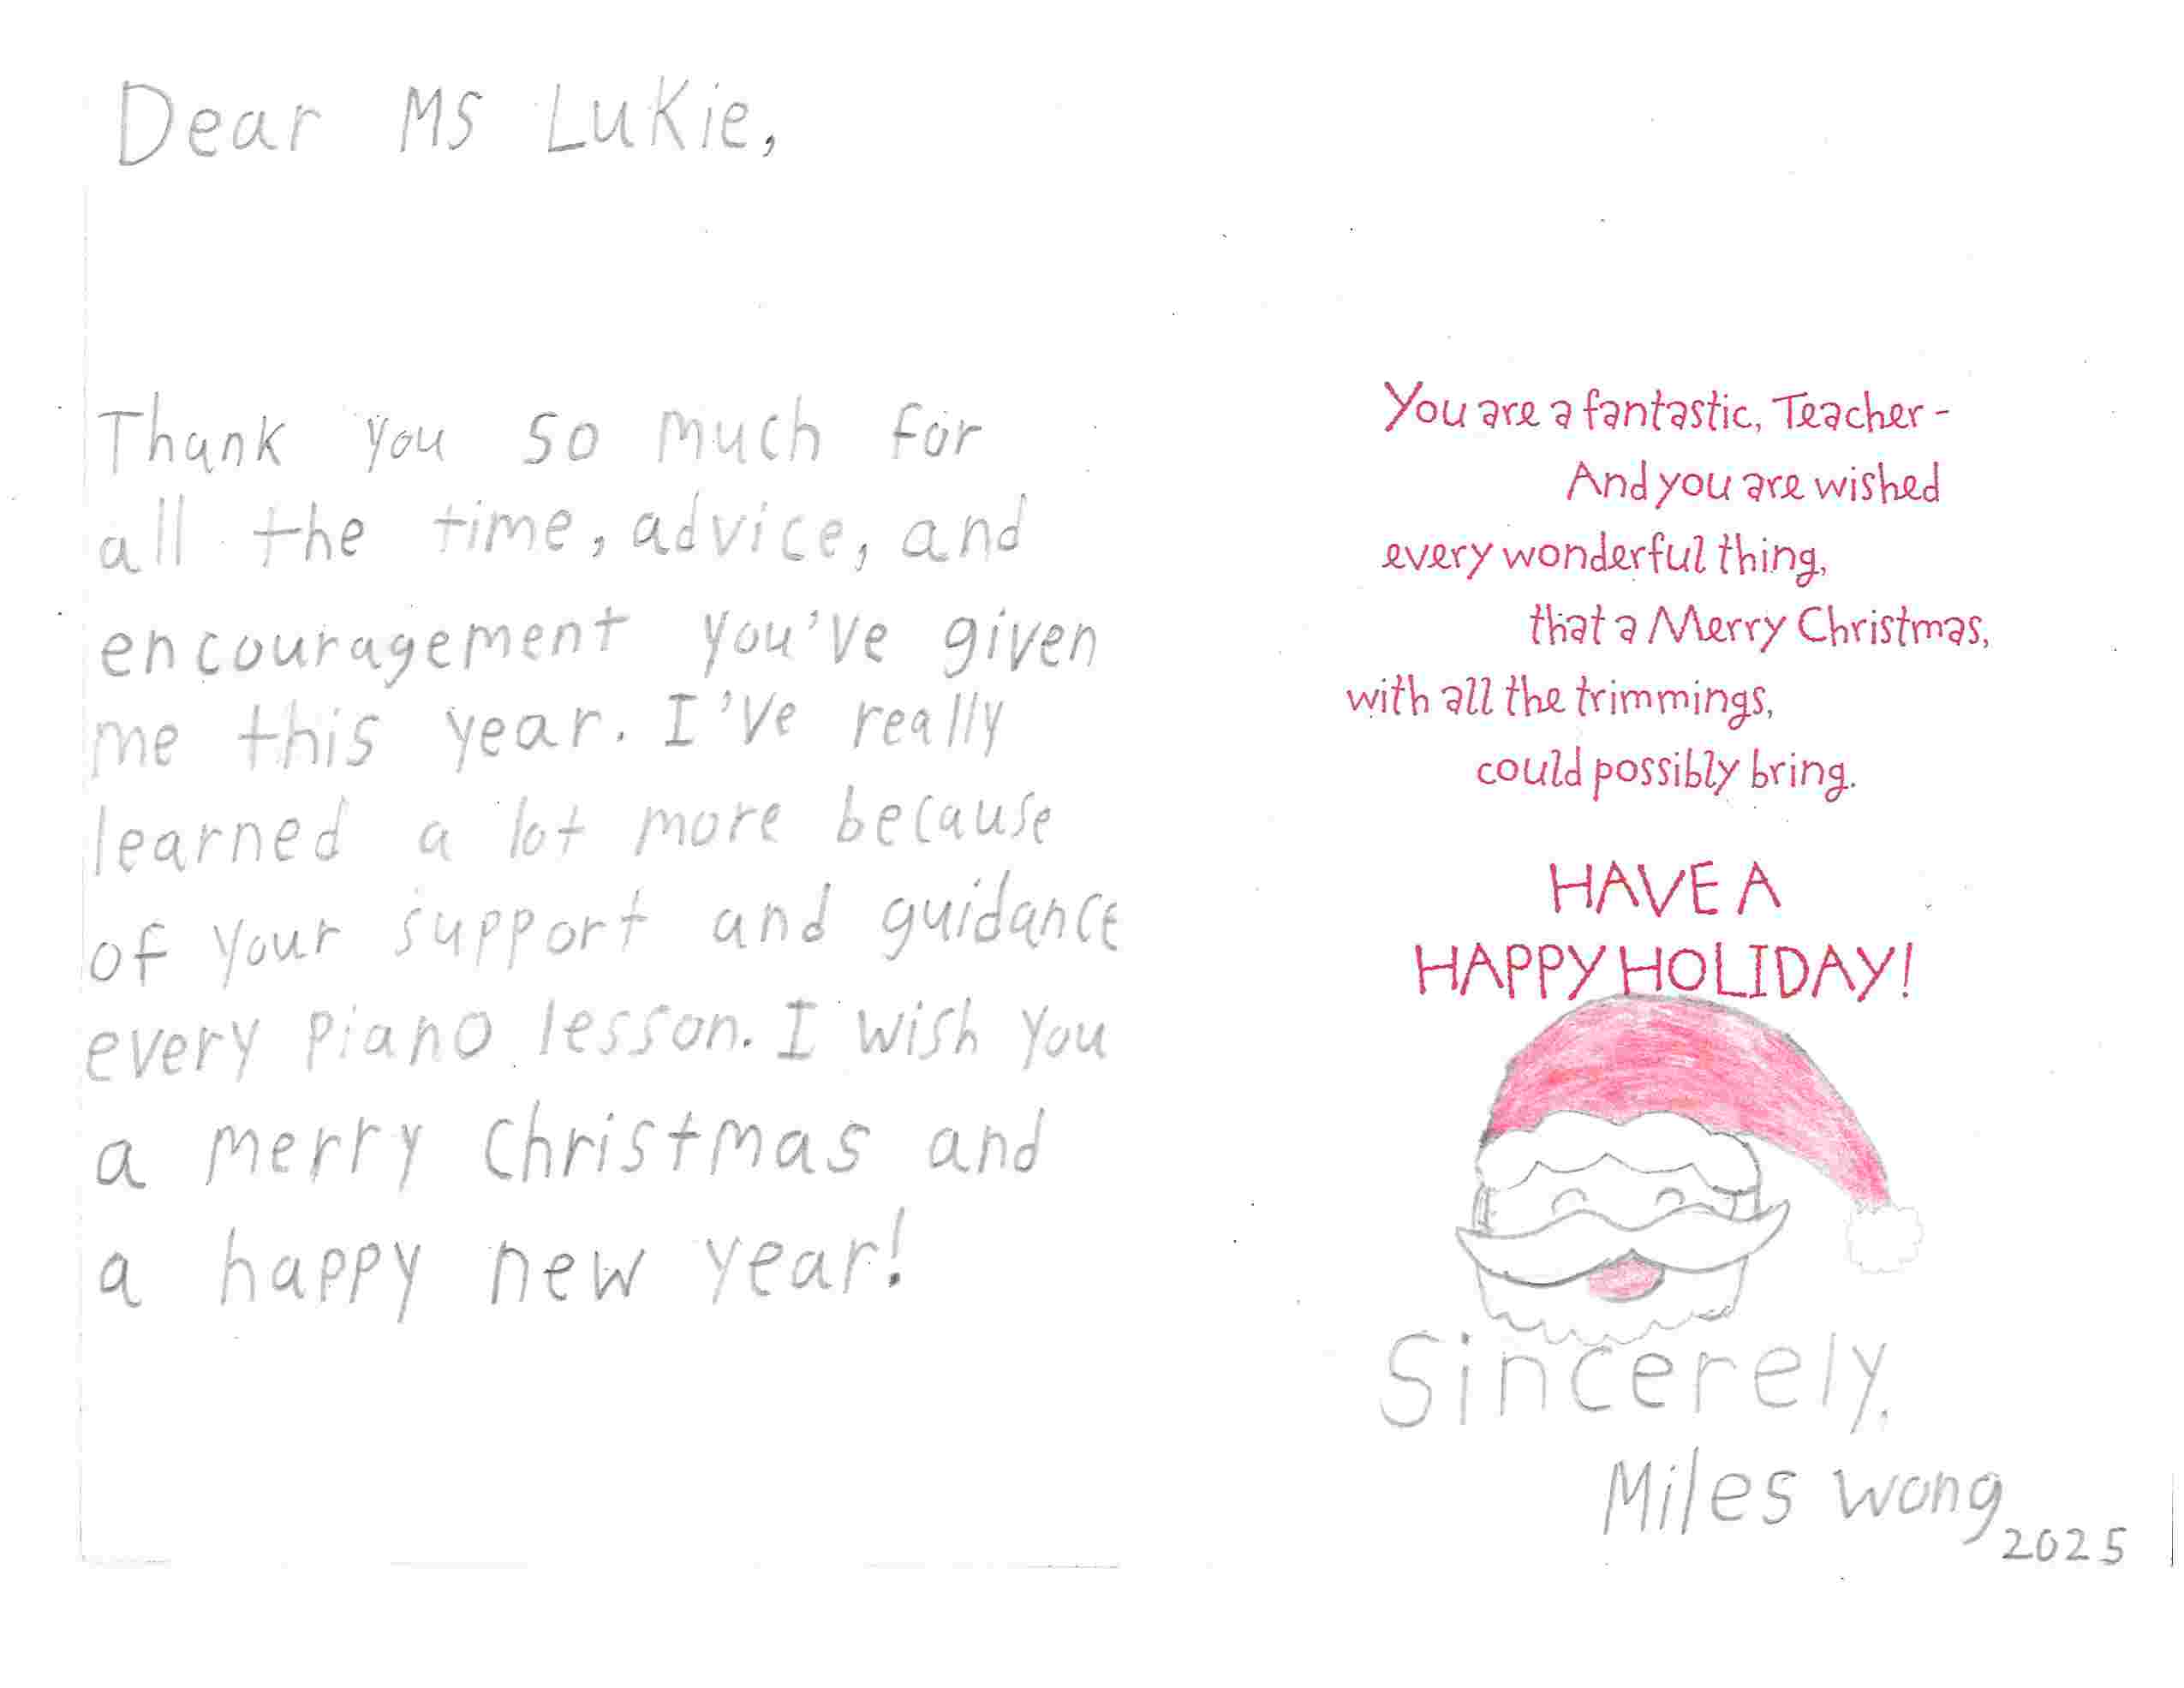 Dear Ms Lukie,
Thank you so much for
all the time, advice, and
encouragement you've given
me this year. I've really
learned a lot more because
of your support and guidance
every piano lesson. I wish you
a merry christmas and
a happy new year!
You are a fantastic, Teacher -
And you are wished
every wonderful thing,
that a Merry Christmas,
with all the trimmings,
could possibly bring.
HAVE A
HAPPY HOLIDAY!
Sincerely,
Miles Wong
2025